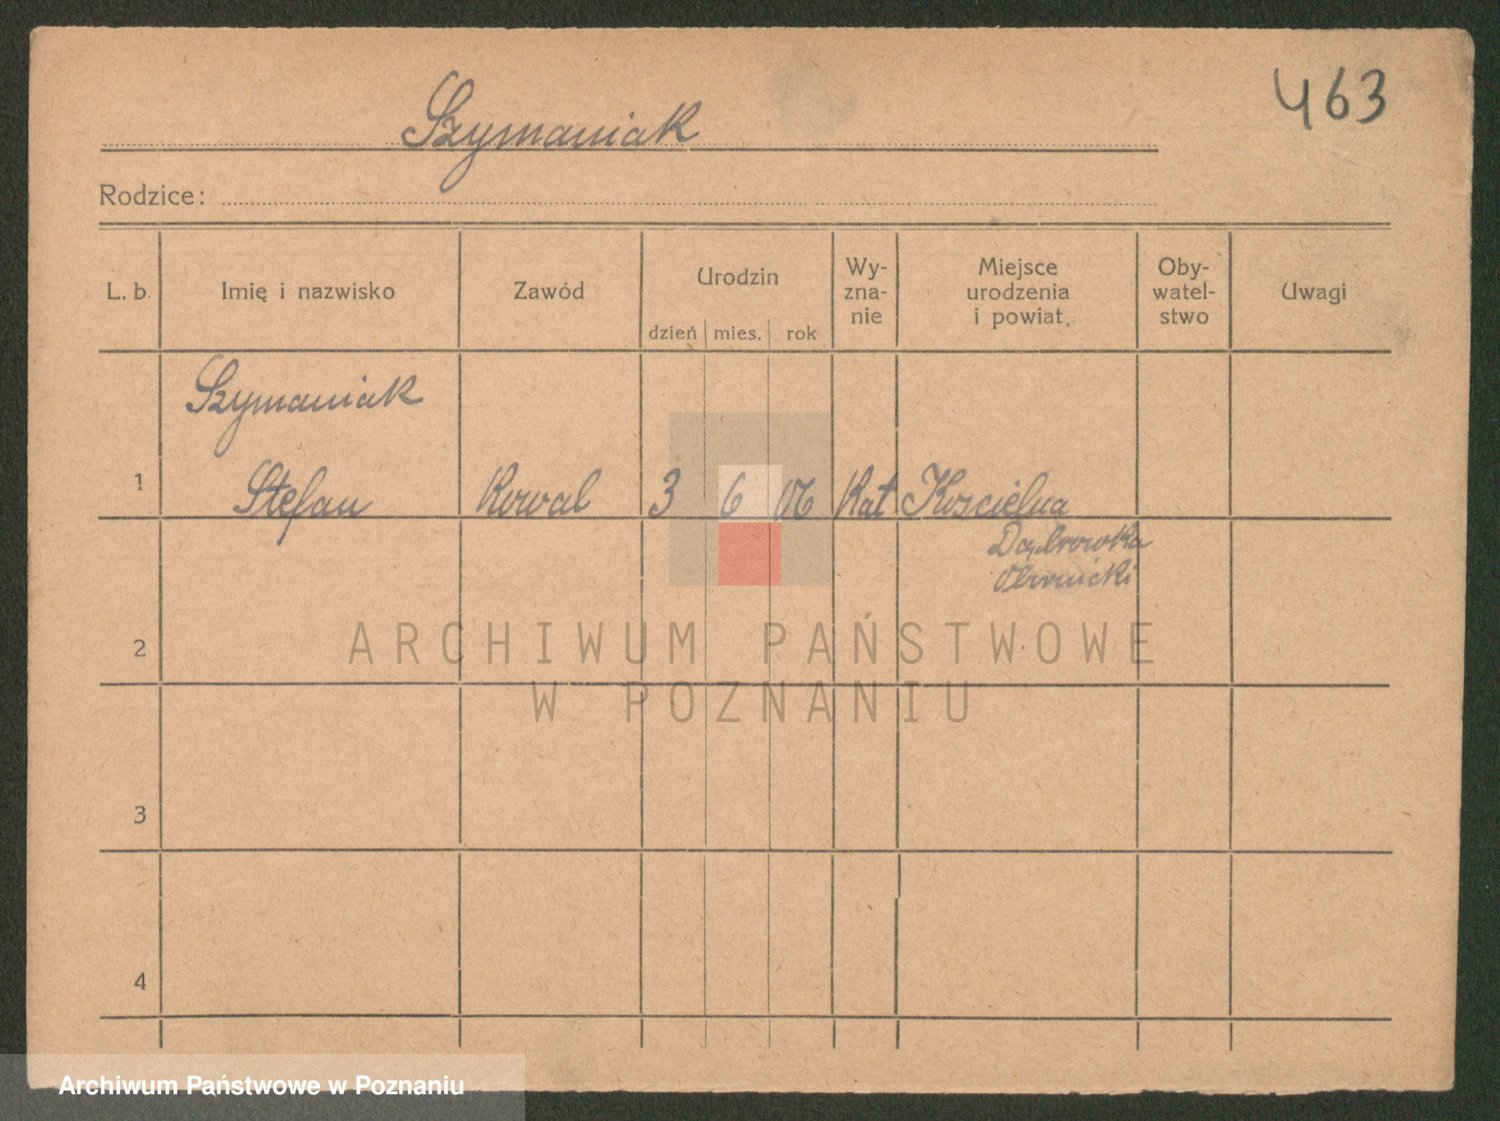 463
Szymaniak
Rodzice:
L. b. Imię i nazwisko Zawód Urodzin dzień mies. rok Wy-zna-nie Miejsce urodzenia i powiat. Oby-watel-stwo Uwagi
Szymaniak
1 Stefan Kowal 3 6 06 Kat Koscielna
Dąbrowka
Obornicki
2
ARCHIWUM PAŃSTWOWE
W POZNANIU
3
4
Archiwum Państwowe w Poznaniu